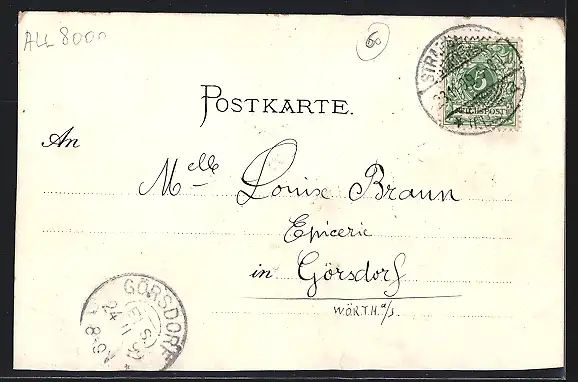 ALL 8000
60
STRA
5
REICHSPOST
POSTKARTE.
An
Melle Louise Braun
Epicerie
in Görsdorf
WÖRTH a/s.
GÖRSDORF
24
11